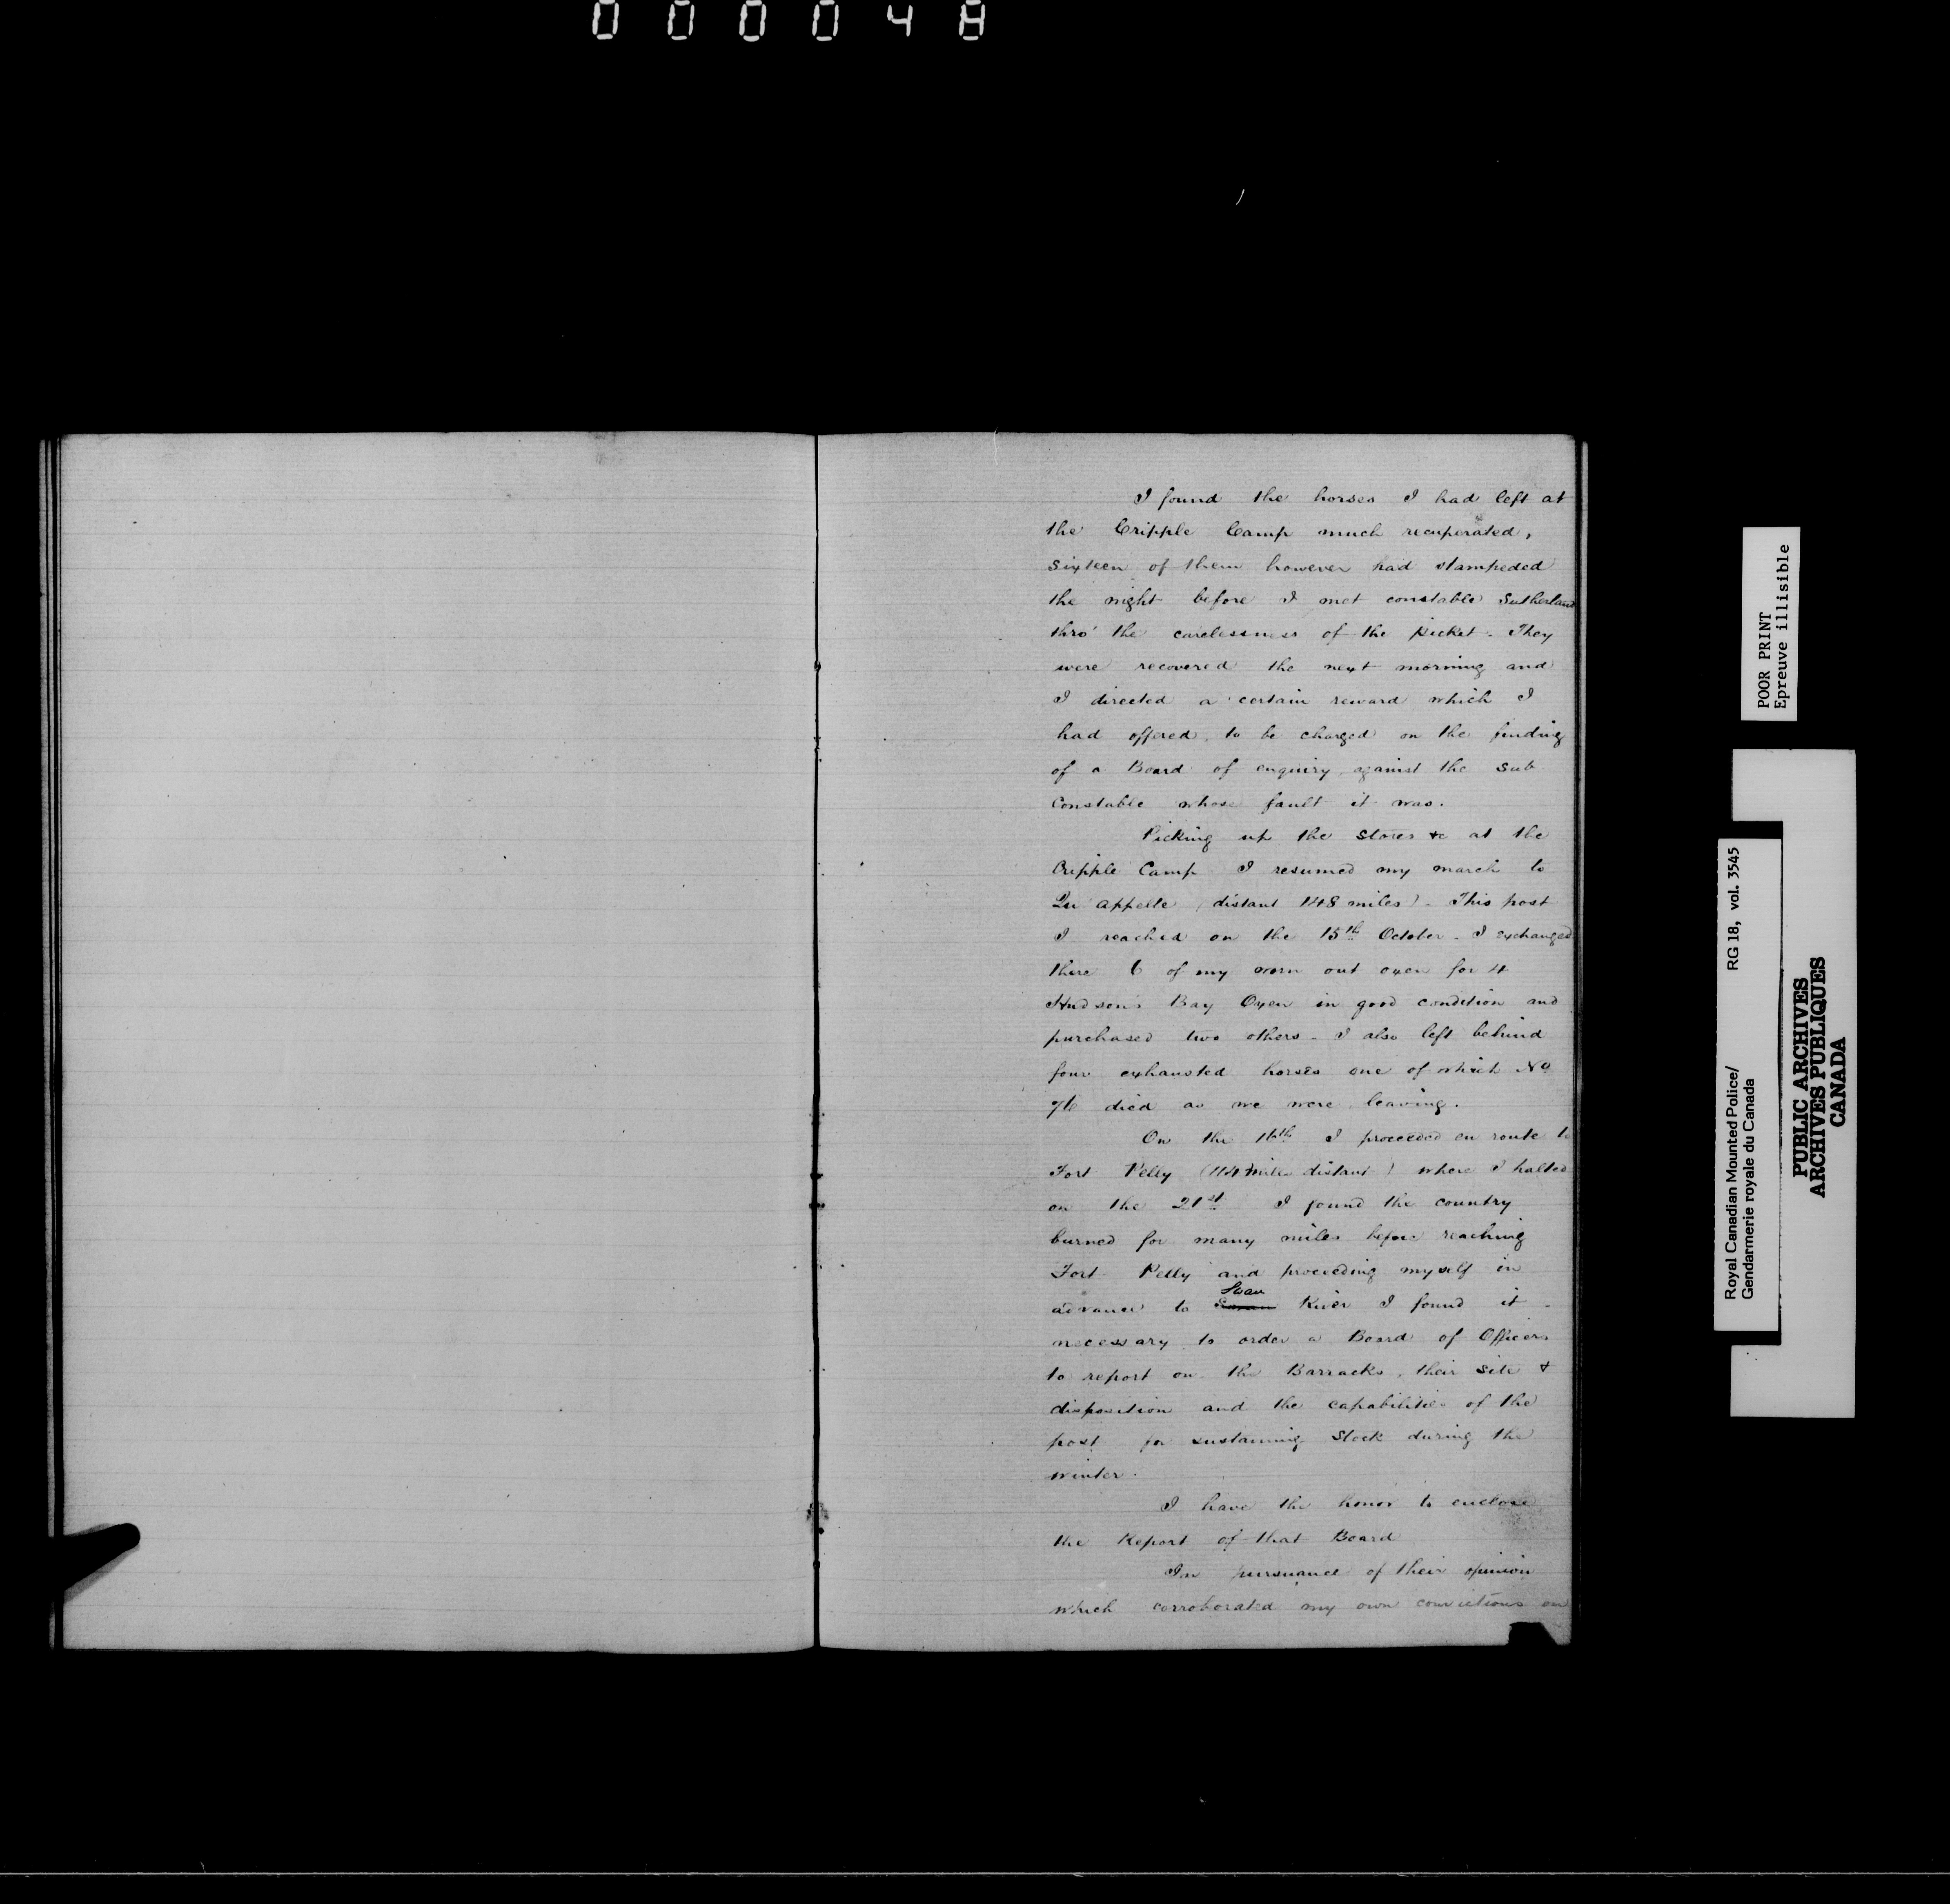 000048
I found the horses I had left at
the Cripple Camp much recuperated,
Sixteen of them however had stampeded
the night before I met constable Sutherland
thro' the carelessness of the picket - They
were recovered the next morning and
I directed a certain reward which I
had offered, to be charged on the finding
of a Board of enquiry, against the Sub
Constable whose fault it was.
Picking up the Stores &c at the
Cripple Camp I resumed my march to
Qu'appelle (distant 148 miles) - This post
I reached on the 15th October - I exchanged
there 6 of my worn out oxen for 4
Hudson's Bay Oxen in good condition and
purchased two others - I also left behind
four exhausted horses one of which No
76 died as we were leaving.
On the 16th I proceeded en route to
Fort Pelly (114 miles distant) where I halted
on the 21st I found the country
burned for many miles before reaching
Fort Pelly and proceeding myself in
advance to Swan River I found it -
necessary to order a Board of Officers
to report on the Barracks, their site &
disposition and the capabilities of the
post for sustaining Stock during the
winter.
I have the honor to enclose
the Report of that Board
In pursuance of their opinion
which corroborated my own convictions on
POOR PRINT
Epreuve illisible
Royal Canadian Mounted Police/ RG 18, vol. 3545
Gendarmerie royale du Canada
PUBLIC ARCHIVES
ARCHIVES PUBLIQUES
CANADA